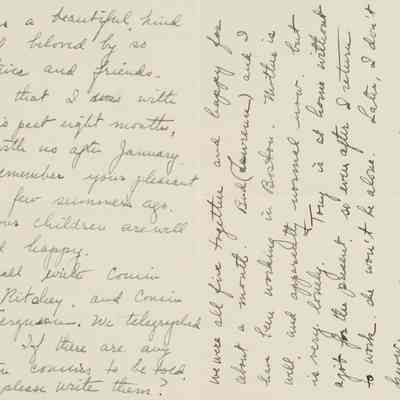 s a beautiful, kind
beloved by so
tives and friends.
that I was with
is past eight months,
with us after January.
remember your pleasant
few summers ago.
our children are well
d happy.
with Cousin
Ritchey, and Cousin
Ferguson. We telegraphed
If there are any
cousins to be told
please write them?
we were all five together and happy for
about a month. Bud (Lawrence) and I
have been working in Boston. Mother is
well, and apparently normal now, but
is very lonely. Tony is at home without
a job for the present so even after I return
to work she won't be alone. Later, I don't
know.